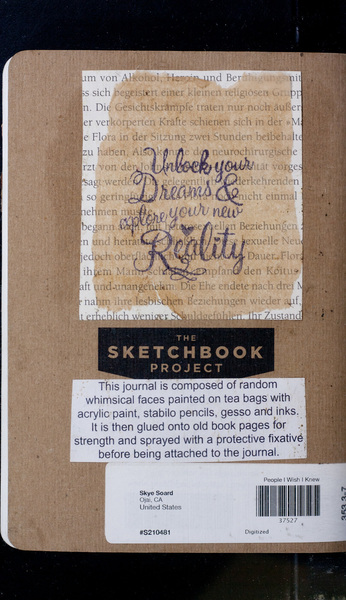 um von Alkohol, Heroin und Beruhigungsmit
ss sich begeistert einer kleinen religiösen Grupp
en. Die Gesichtskrämpfe traten nur noch äußer
er verkörperten Kräfte schienen sich in der »Ma
e Flora in der Sitzung zwei Stunden beibehalte
zu haben, Als
neurochirurgische
rzt von der
vorges
sagt werde
gelegentli
derkehrenden
so gering
nicht einmal
nehmen mus
Unlock your
Dreams &
explore your new
Reality
en
sexuelle Neu
und heira
jedoch oberflä
Dauer. Flor
ihrem Mann
mpfand den Koitus
aft und unangenehm. Die Ehe endete nach drei M
nahm ihre lesbischen Beziehungen wieder auf,
t erheblich weniger Schuldgefühlen. Ihr Zustand
THE
SKETCHBOOK
PROJECT
This journal is composed of random
whimsical faces painted on tea bags with
acrylic paint, stabilo pencils, gesso and inks.
It is then glued onto old book pages for
strength and sprayed with a protective fixative
before being attached to the journal.
People I Wish I Knew
Skye Soard
Ojai, CA
United States
37527
#S210481
Digitized
353.3-7